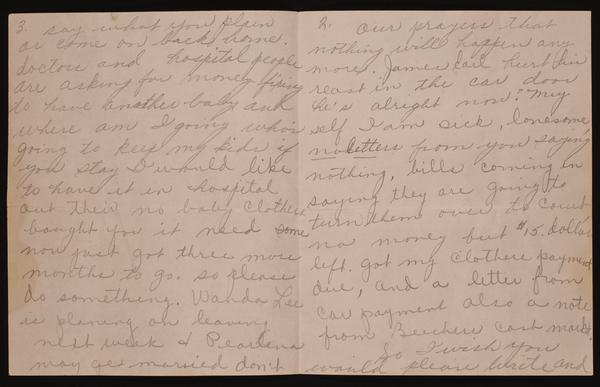 2. Our prayers that
nothing will happen any
more. James Earl hurt his
in the car door
he's alright now. My
self I am sick, lonesome
no letters from you saying
nothing, bills coming in
saying they are going to
turn them over to court
no money but $15. dollar
left. got my clothers payment
due, and a letter from
car payment also a note
from Beechers cash market
So I wish you
would please write and
3. say what you plain
or come on back home.
doctors and hospital people
are asking for money fixing
to have another baby and
where am I going who's
going to keep my kids if
you stay I would like
to have it in hospital
but their no baby clothers
bought you it need some
now just got three more
months to go. so please
do something. Wanda Lee
is planing on leaving
next week & Pearlena
may get married don't